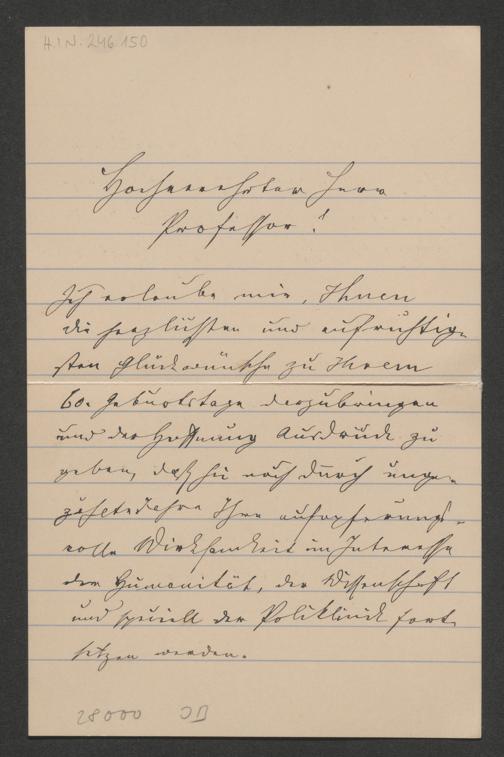 H.I.N. 246.150
Hochverehrter Herr
Professor!
Ich erlaube mir, Ihnen
die herzlichsten und aufrichtig-
sten Glückwünsche zu Ihrem
60. Geburtstage darzubringen
und der Hoffnung Ausdruck zu
geben, daß Sie noch durch unge-
zählte Jahre Ihre aufopferungs-
volle Wirksamkeit im Interesse
der Humanität, der Wissenschaft
und speciell der Poliklinik fort
setzen werden.
28000